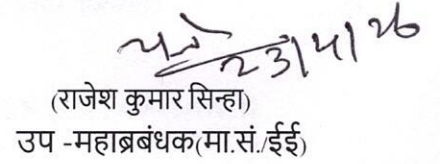 23/4/26
(राजेश कुमार सिन्हा)
उप -महाब्रबंधक(मा.सं./ईई)